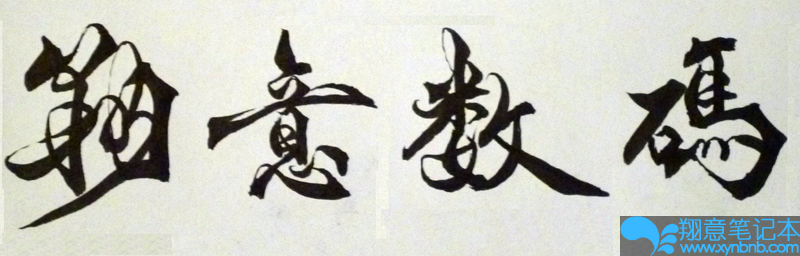 翔意数碼
翔意笔记本
www.xynbnb.com